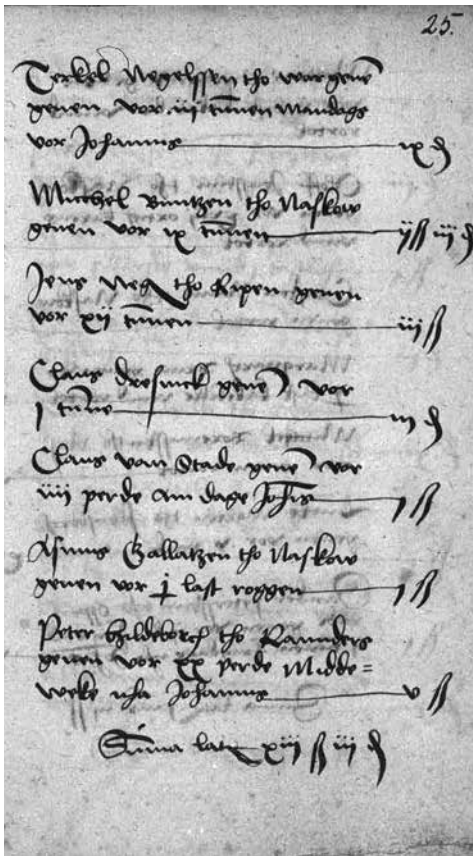 25.
Terkel Negelssen tho worgene
geuen vor iii tunnen Mandags
vor Johannis ix ₰
Michel Buntzen tho Naskow
geuen vor ix tunnen ij ß iii ₰
Jens Neg tho Ripen geuen
vor xij tunnen iii ß
Claus dresinck geue vor
j tunne iii ₰
Claus vam Stade geue vor
iiii perde am dage Johis j ß
Asmus Gallatzen tho Naskow
geuen vor last roggen j ß
Peter Hildeborch tho Rannders
geuen vor xx perde Midde=
weke nha Johannis v ß
Summa lat xiii ß iii ₰